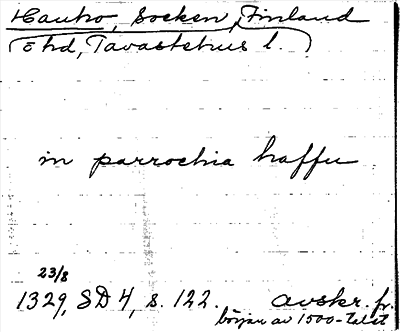 Hauho, Socken, Finland
(Ehd, Tavastehus l.)
in parrochia haffu
23/8
1329, SD 4, s. 122. avskr. fr.
början av 1500-talet